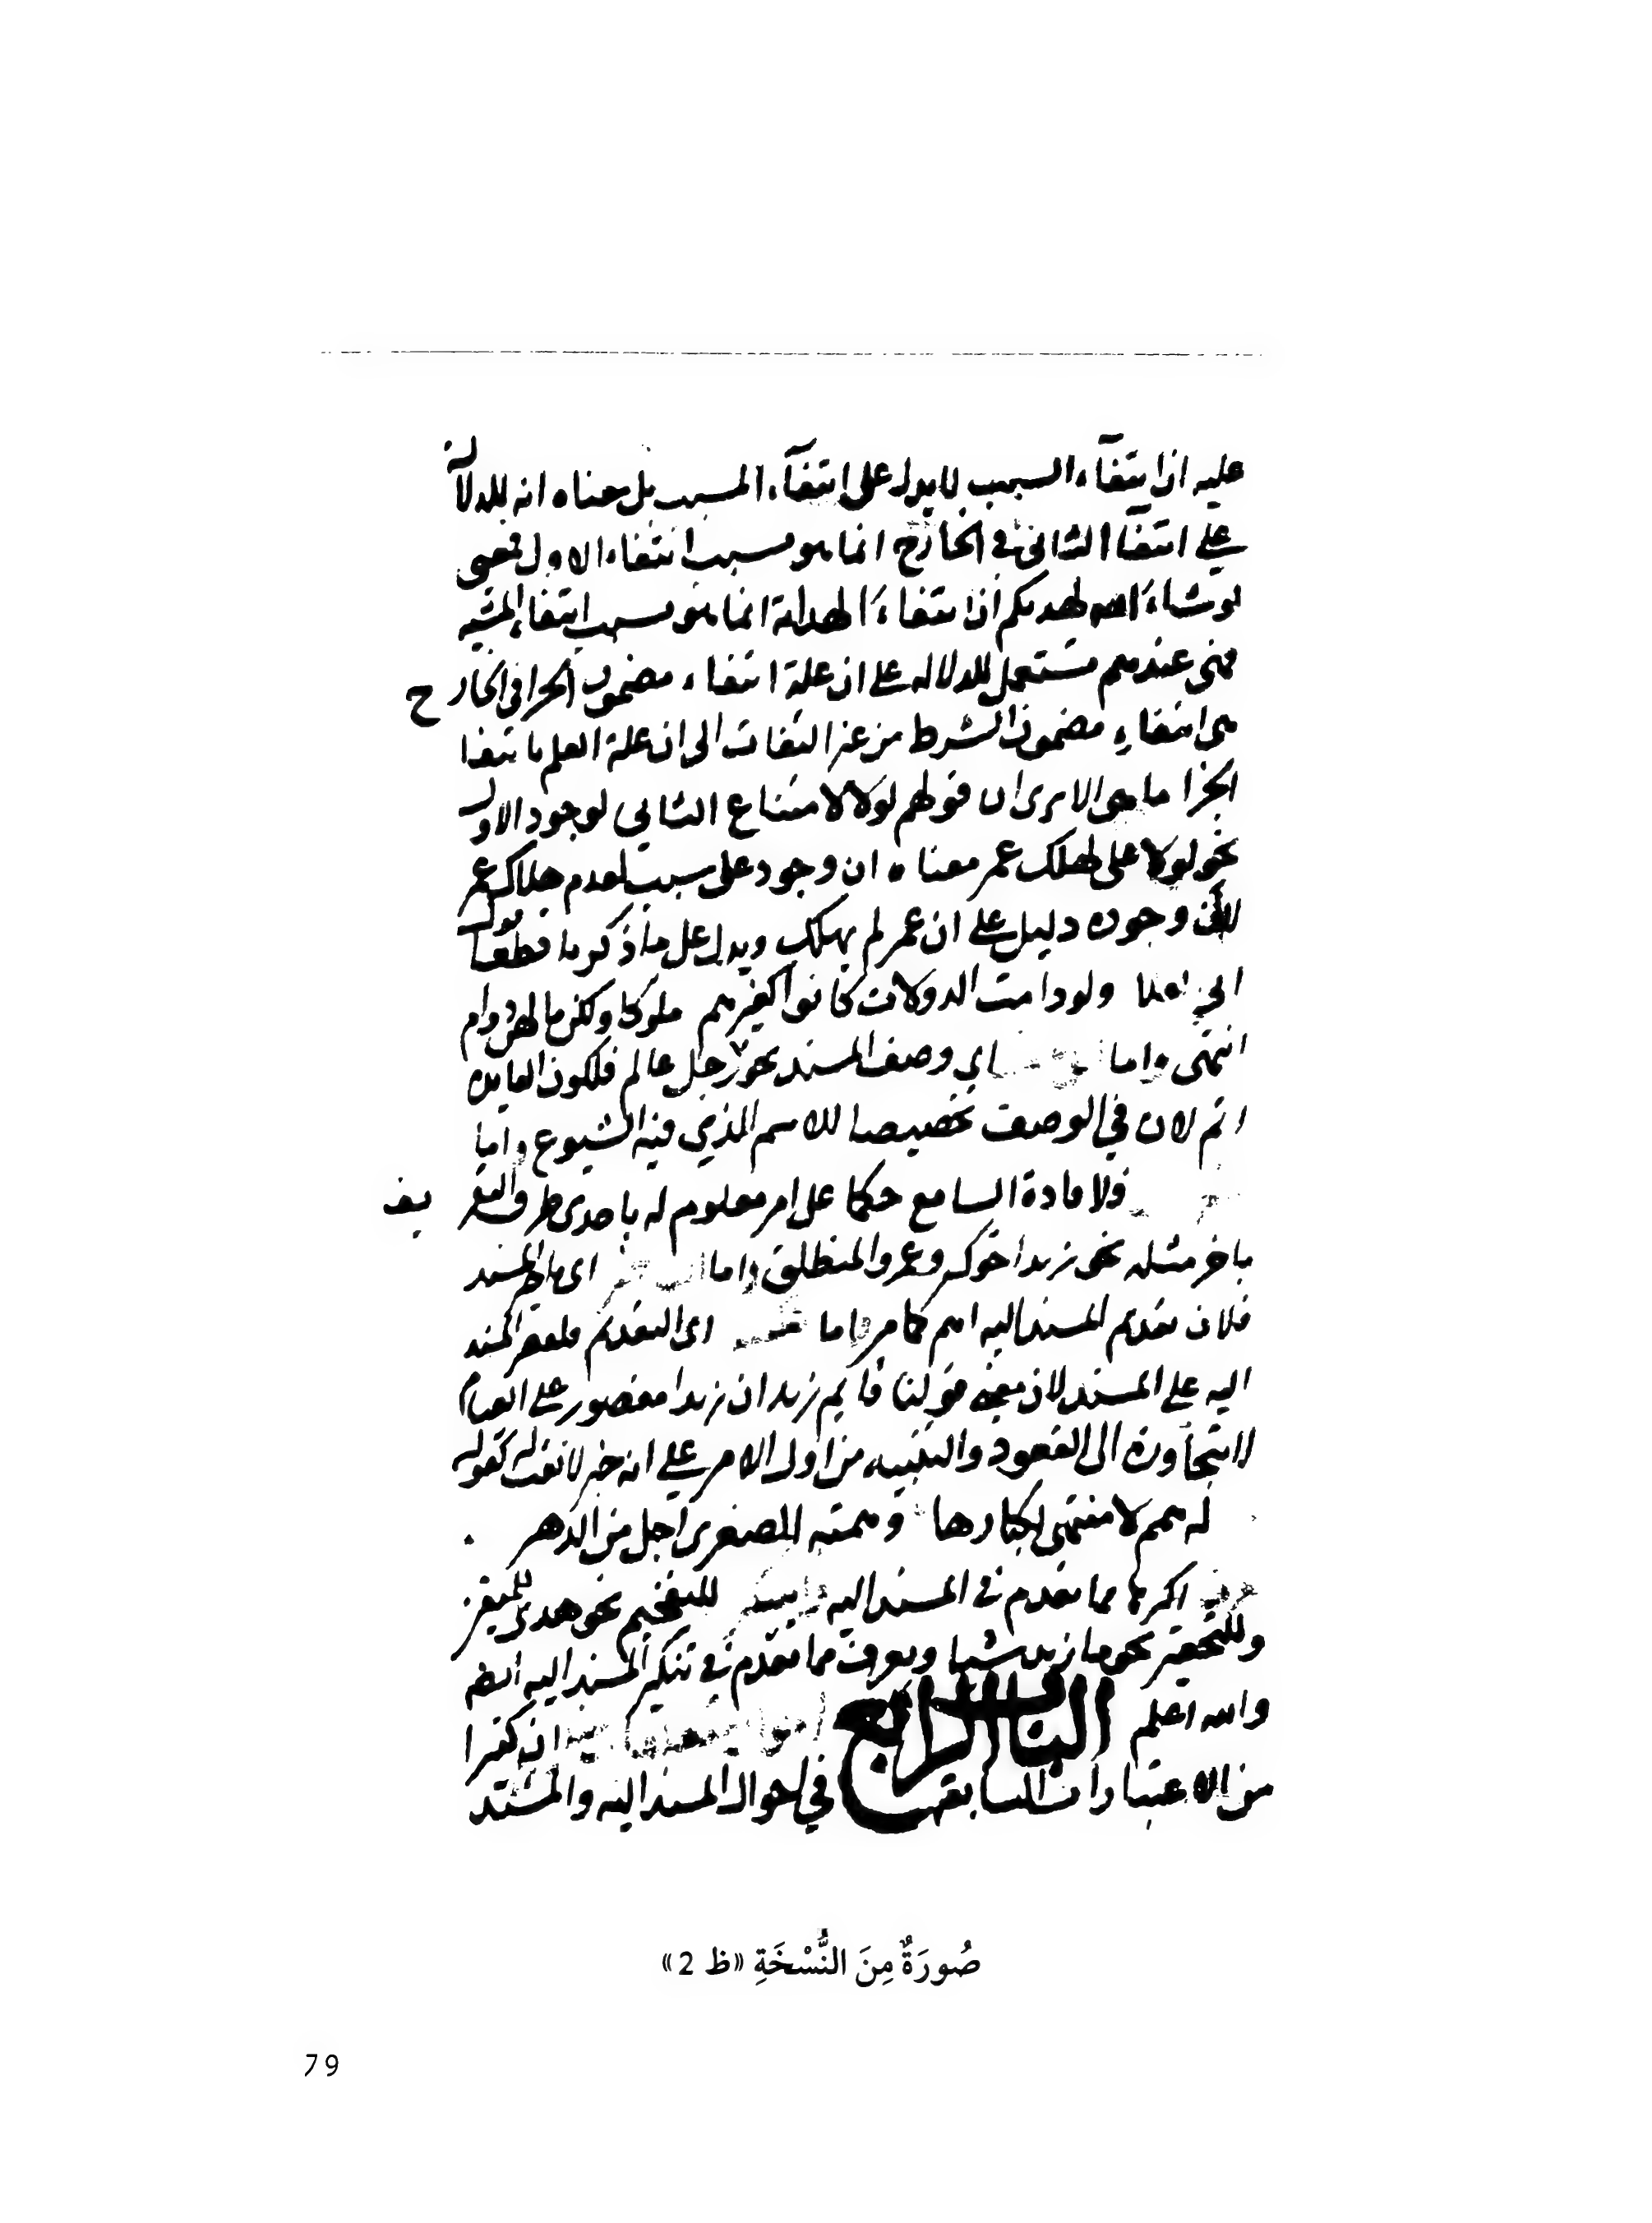 عليه ان انتفآء السبب لا يدل على انتفآء المسبب بل معناه انه للدلالة
على انتفآ الثانى في الخارج انما هو بسبب انتفاء الاول فمعنى
لو شاءَ الله لهديكم ان انتفاءَ الهداية انما هو بسبب انتفاء المشية
فهى عندهم مستعمل للدلاله على ان علة انتفاء مضمون الجزا فى الخارج
هى انتفاءِ مضمون الشرط من غير التفات الى ان علة العلم بانتفا
الجزا ما هى الا يرى ان قولهم لولا لامتناع الثانى لوجود الاول
نحو لولا على لهلك عمر معناه ان وجود على سبب لعدم هلاك عمر
لا ان وجوده دليل على ان عمر لم يهلك ويدل على ما ذكرنا قطعا قول
ابي العلا ولو دامت الدولات كانوا كغيرهم ملوكا ولكن ما لهن دوام
انتهى واما اي وصف المسند نحو رجل عالم فلكون الفايدة
اتم لان في الوصف تخصيصا للاسم الذي فيه الشيوع واما
فلافادة السامع حكما على امر معلوم له باحدى طرق التعريف
باخر مثله نحو زيد اخوك وعمرو المنطلق واما اى المسند
فلان تقديم المسند اليه اهم كما مر واما اى التقديم فلقصر المسند
اليه على المسند لان معنى قولنا قايم زيد ان زيدا مقصور على القيام
لا يتجاوزه الى القعود والتنبيه من اول الامر على انه خبر لا نعت كقوله
له همم لا منتهى لكبارها وهمته الصغرى اجل من الدهر
اكثرها مما تقدم فى المسند اليه للتفخيم نحو هدى للمتقين
وللتحقير نحو ما زيد شيا ويعرف مما تقدم في تنكير المسند اليه ايضا
والله اعلم الباب الرابع ان كثيرا
من الاعتبارات السابقه في احوال المسند اليه والمسند
صُورَةٌ مِنَ النُّسْخَةِ «ظ 2»
79